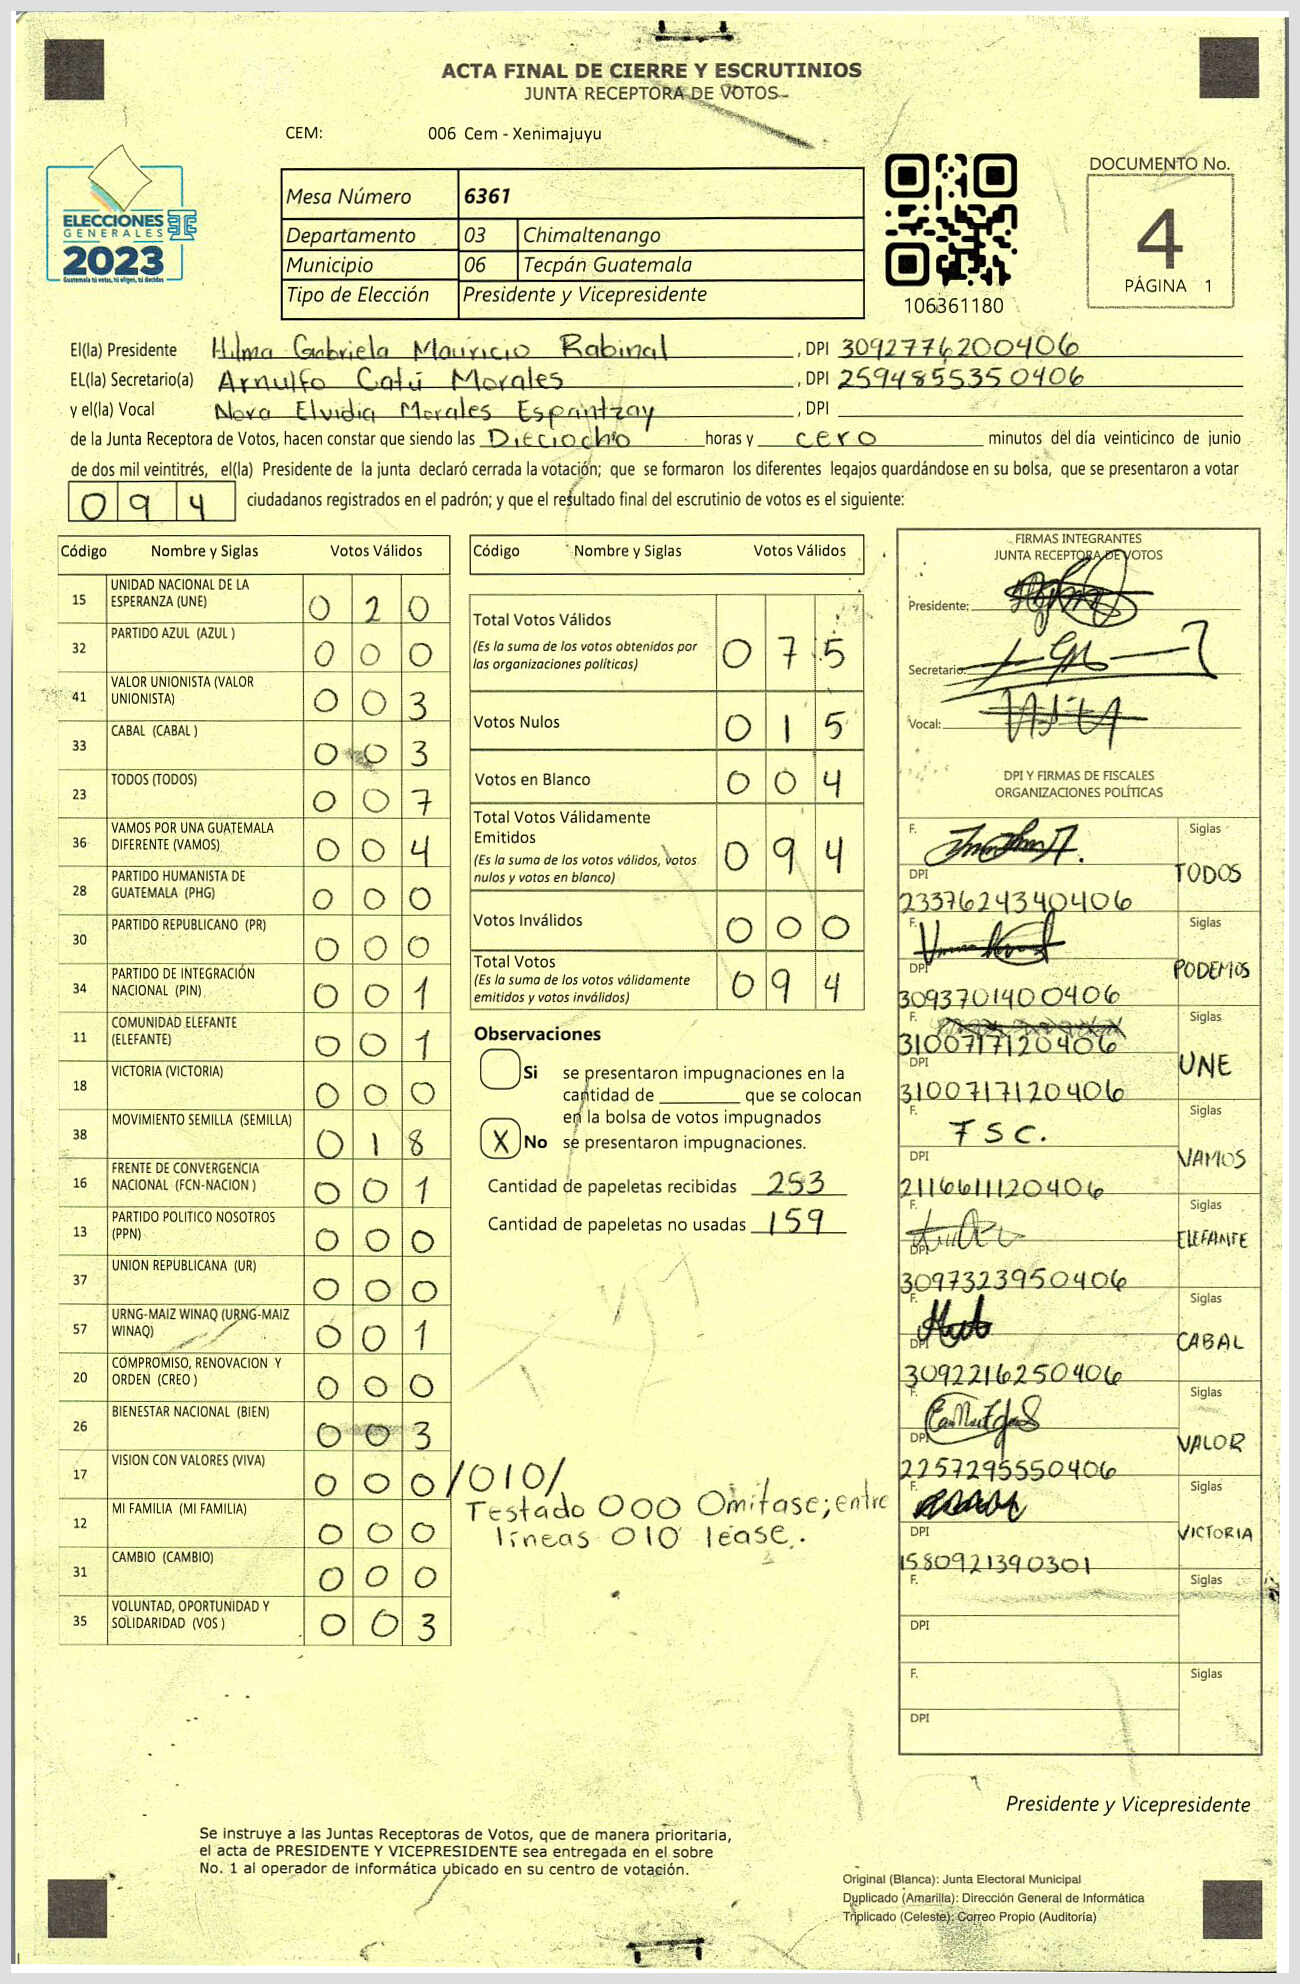 ACTA FINAL DE CIERRE Y ESCRUTINIOS
JUNTA RECEPTORA DE VOTOS
CEM: 006 Cem - Xenimajuyu
ELECCIONES
GENERALES
2023
Guatemala tú votas, tú eliges, tú decides
Mesa Número 6361
Departamento 03 Chimaltenango
Municipio 06 Tecpán Guatemala
Tipo de Elección Presidente y Vicepresidente
106361180
DOCUMENTO No.
4
PÁGINA 1
El(la) Presidente Hilma Gabriela Mauricio Rabinal , DPI 3092776200406
EL(la) Secretario(a) Arnulfo Catú Morales , DPI 2594855350406
y el(la) Vocal Nora Elvidia Morales Espantzay , DPI
de la Junta Receptora de Votos, hacen constar que siendo las Dieciocho horas y cero minutos del día veinticinco de junio
de dos mil veintitrés, el(la) Presidente de la junta declaró cerrada la votación; que se formaron los diferentes legajos guardándose en su bolsa, que se presentaron a votar
094 ciudadanos registrados en el padrón; y que el resultado final del escrutinio de votos es el siguiente:
Código Nombre y Siglas Votos Válidos
15 UNIDAD NACIONAL DE LA ESPERANZA (UNE) 020
32 PARTIDO AZUL (AZUL ) 000
41 VALOR UNIONISTA (VALOR UNIONISTA) 003
33 CABAL (CABAL ) 003
23 TODOS (TODOS) 007
36 VAMOS POR UNA GUATEMALA DIFERENTE (VAMOS) 004
28 PARTIDO HUMANISTA DE GUATEMALA (PHG) 000
30 PARTIDO REPUBLICANO (PR) 000
34 PARTIDO DE INTEGRACIÓN NACIONAL (PIN) 001
11 COMUNIDAD ELEFANTE (ELEFANTE) 001
18 VICTORIA (VICTORIA) 000
38 MOVIMIENTO SEMILLA (SEMILLA) 018
16 FRENTE DE CONVERGENCIA NACIONAL (FCN-NACION ) 001
13 PARTIDO POLITICO NOSOTROS (PPN) 000
37 UNION REPUBLICANA (UR) 000
57 URNG-MAIZ WINAQ (URNG-MAIZ WINAQ) 001
20 COMPROMISO, RENOVACION Y ORDEN (CREO ) 000
26 BIENESTAR NACIONAL (BIEN) 003
17 VISION CON VALORES (VIVA) 000 /010/
12 MI FAMILIA (MI FAMILIA) 000
31 CAMBIO (CAMBIO) 000
35 VOLUNTAD, OPORTUNIDAD Y SOLIDARIDAD (VOS ) 003
Testado 000 Omitase; entre
líneas 010 lease.
Código Nombre y Siglas Votos Válidos
Total Votos Válidos 075
(Es la suma de los votos obtenidos por
las organizaciones políticas)
Votos Nulos 015
Votos en Blanco 004
Total Votos Válidamente
Emitidos 094
(Es la suma de los votos válidos, votos
nulos y votos en blanco)
Votos Inválidos 000
Total Votos 094
(Es la suma de los votos válidamente
emitidos y votos inválidos)
Observaciones
Si se presentaron impugnaciones en la
cantidad de ________ que se colocan
en la bolsa de votos impugnados
X No se presentaron impugnaciones.
Cantidad de papeletas recibidas 253
Cantidad de papeletas no usadas 159
FIRMAS INTEGRANTES
JUNTA RECEPTORA DE VOTOS
Presidente:
Secretario:
Vocal:
DPI Y FIRMAS DE FISCALES
ORGANIZACIONES POLÍTICAS
F. Siglas
DPI TODOS
2337624340406
F. Siglas
DPI PODEMOS
3093701400406
F. Siglas
3100717120406
DPI UNE
3100717120406
F. 7 S C. Siglas
DPI VAMOS
2116611120406
F. Siglas
DPI ELEFANTE
3097323950406
F. Siglas
DPI CABAL
3092216250406
F. Siglas
DPI VALOR
2257295550406
F. Siglas
DPI VICTORIA
1580921390301
F. Siglas
DPI
F. Siglas
DPI
Presidente y Vicepresidente
Se instruye a las Juntas Receptoras de Votos, que de manera prioritaria,
el acta de PRESIDENTE Y VICEPRESIDENTE sea entregada en el sobre
No. 1 al operador de informática ubicado en su centro de votación.
Original (Blanca): Junta Electoral Municipal
Duplicado (Amarilla): Dirección General de Informática
Triplicado (Celeste): Correo Propio (Auditoría)